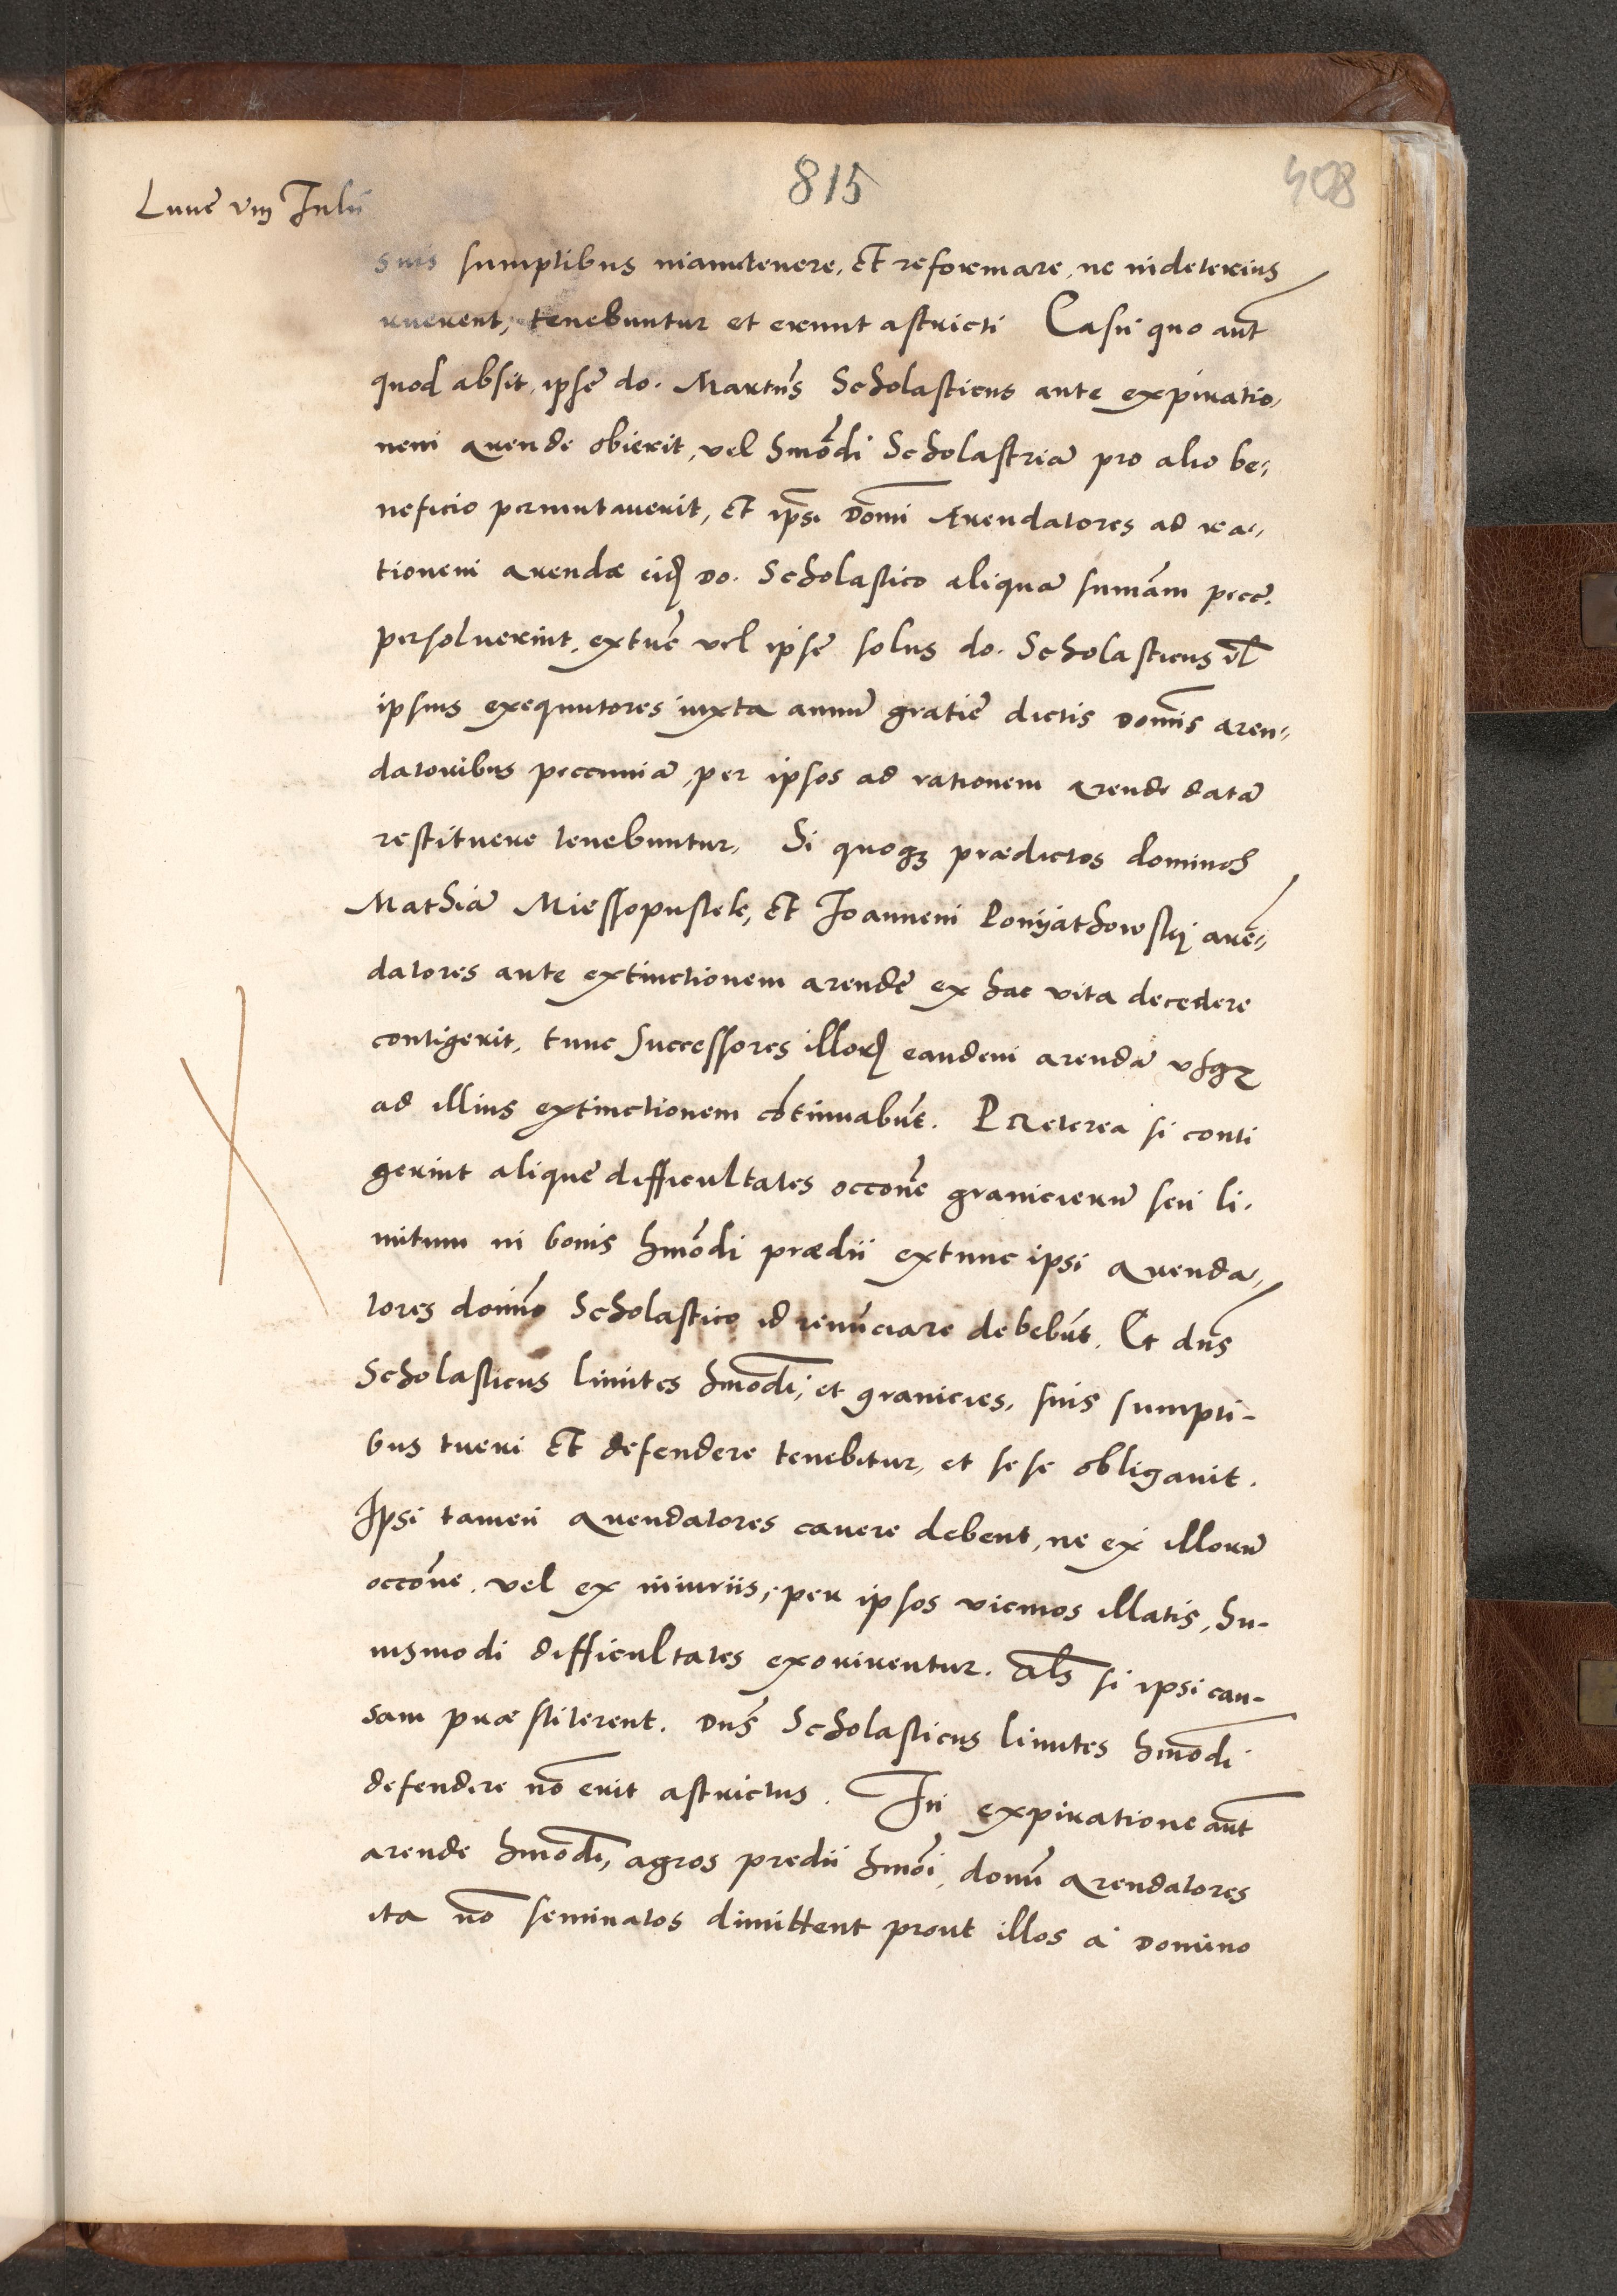 815
408
Lune viii Julii
suis sumptibus manutenere, et reformare, ne in deterius
ruerent, tenebuntur et erunt astricti Casu quo aut̄
quod absit, ipse do. Martin̄s Scholasticus ante expiratio,
nem arende obierit, vel hmōdi Scholastriā pro alio be,
neficio permutaverit, et ip̄si Domi Arendatores ad ra,
tionem arendæ eidꝫ Do. Scholastico aliquā sum̄am pecc.
persolverint, extūc vel ipse solus do. Scholasticus vl̄
ipsius exequutores iuxta annū gratie dictis Domis aren,
datoribus peccuniā, per ipsos ad rationem arende datā
restituere tenebuntur, Si quoqꝫ prædictos dominos
Mathiā Miessopustek, et Joannem Ponyathowskj arē,
datores ante extinctionem arende ex hac vita decedere
contigerit, tunc Successores illorꝫ eandem arendā usqꝫ
ad illius extinctionem cōtinuabūt. Præterea si conti
gerint alique difficultates occōne granicierū seu li.
mitum in bonis hmōdi prædii extunc ipsi arenda,
tores domno Scholastico id renūciare debebūt. Et dn̄s
Scholasticus limites hmōdi, et granicies, suis sumpti-
bus tueri et defendere tenebitur, et se se obligavit.
Ipsi tamen arendatores cavere debent, ne ex illorū
occōne, vel ex iniuriis, per ipsos vicinos illatis, hu-
iusmodi difficultates exorirentur. Al̄s si ipsi cau-
sam præstiterent. Dn̄s Scholasticus limites hmōdi
defendere nō erit astrictus. In expiratione aut̄
arende hmōdi, agros predii hmōi, domī arendatores
ita nō seminatos dimittent prout illos a Domino